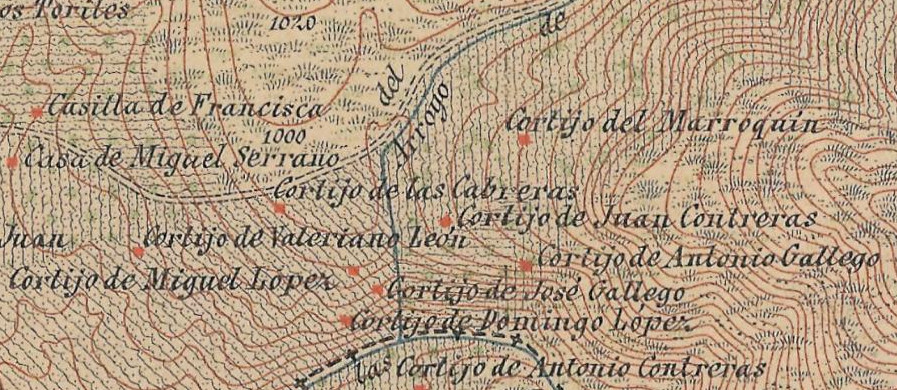 os Torites
1020
de
del
Arroyo
Casilla de Francisca
1000
Cortijo del Marroquín
Casa de Miguel Serrano
Cortijo de las Cabreras
Cortijo de Juan Contreras
Juan
Cortijo de Valeriano León
Cortijo de Antonio Gallego
Cortijo de Miguel López
Cortijo de José Gallego
Cortijo de Domingo López
Las
Cortijo de Antonio Contreras